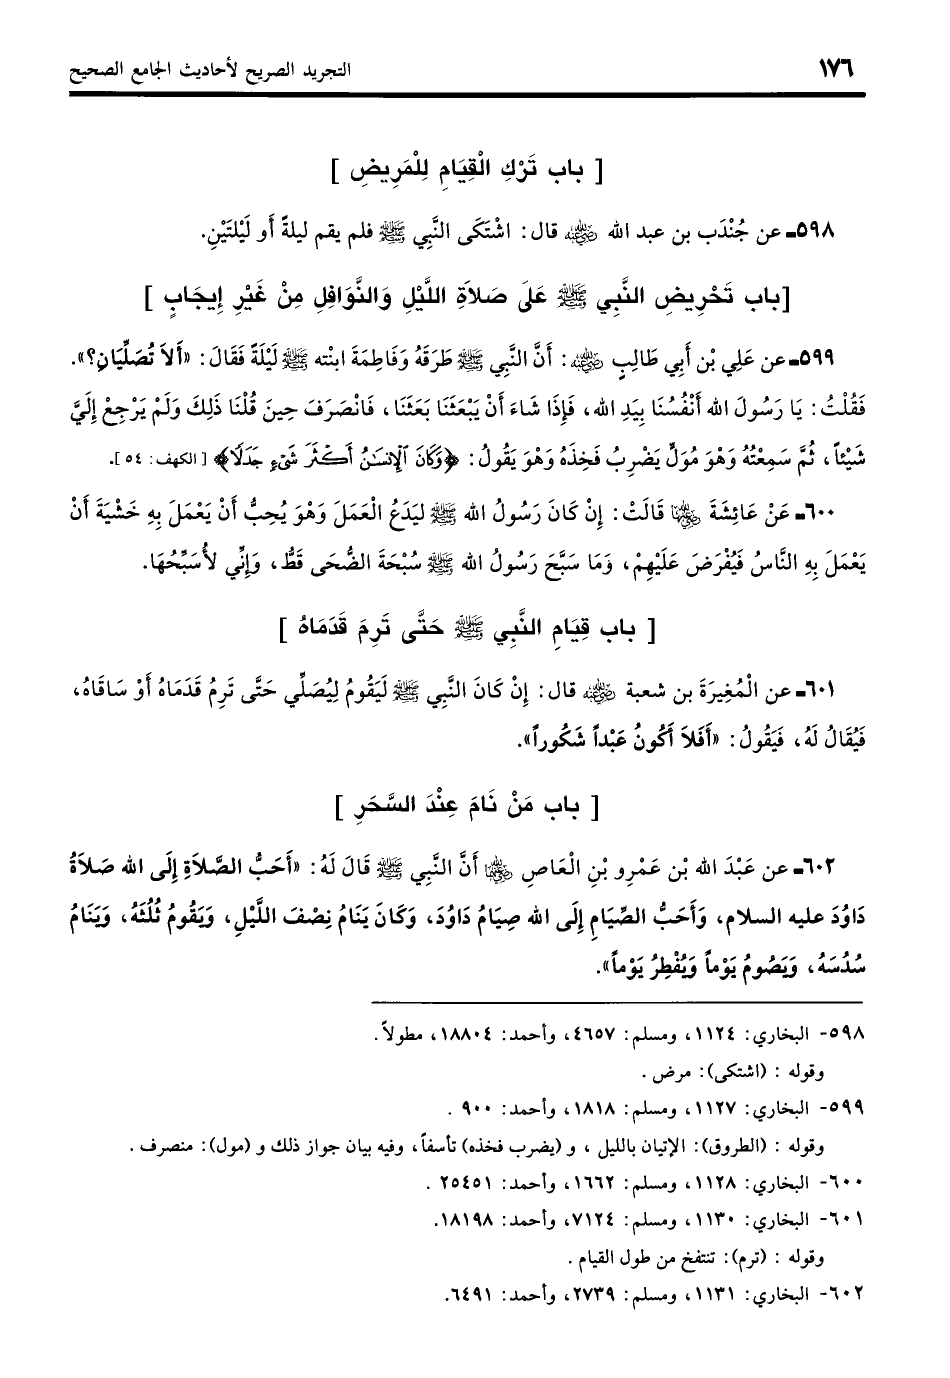 ١٧٦ التجريد الصريح لأحاديث الجامع الصحيح
[ باب تَرْكِ الْقِيَامِ لِلْمَرِيضِ ]
٥٩٨ـ عن جُنْدَب بن عبد الله رضي الله عنه قال: اشْتَكَى النَّبِي ﷺ فلم يقم ليلةً أو لَيْلَتَيْنِ.
[باب تَحْرِيضِ النَّبِي ﷺ عَلَى صَلاَةِ اللَّيْلِ وَالنَّوَافِلِ مِنْ غَيْرِ إِيجَابٍ ]
٥٩٩ـ عن عَلِي بْن أَبِي طَالِبٍ رضي الله عنه: أَنَّ النَّبِي ﷺ طَرَقَهُ وَفَاطِمَةَ ابنْته ﷺ لَيْلَةً فَقَالَ: «أَلاَ تُصَلِّيَانِ؟».
فَقُلْتُ: يَا رَسُولَ الله أَنْفُسُنَا بِيَدِ الله، فَإِذَا شَاءَ أَنْ يَبْعَثَنَا بَعَثَنَا، فَانْصَرَفَ حِينَ قُلْنَا ذَلِكَ وَلَمْ يَرْجِعْ إِلَيَّ
شَيْئاً، ثُمَّ سَمِعْتُهُ وَهْوَ مُوَلٍّ يَضْرِبُ فَخِذَهُ وَهْوَ يَقُولُ: ﴿وَكَانَ ٱلْإِنسَٰنُ أَكْثَرَ شَىْءٍ جَدَلًا﴾ [الكهف: ٥٤].
٦٠٠ـ عَنْ عَائِشَةَ رضي الله عنها قَالَتْ: إِنْ كَانَ رَسُولُ الله ﷺ لَيَدَعُ الْعَمَلَ وَهْوَ يُحِبُّ أَنْ يَعْمَلَ بِهِ خَشْيَةَ أَنْ
يَعْمَلَ بِهِ النَّاسُ فَيُفْرَضَ عَلَيْهِمْ، وَمَا سَبَّحَ رَسُولُ الله ﷺ سُبْحَةَ الضُّحَى قَطُّ، وَإِنِّي لأُسَبِّحُهَا.
[ باب قِيَامِ النَّبِي ﷺ حَتَّى تَرِمَ قَدَمَاهُ ]
٦٠١ـ عن الْمُغِيرَةَ بن شعبة رضي الله عنه قال: إِنْ كَانَ النَّبِي ﷺ لَيَقُومُ لِيُصَلِّي حَتَّى تَرِمُ قَدَمَاهُ أَوْ سَاقَاهُ،
فَيُقَالُ لَهُ، فَيَقُولُ: «أَفَلاَ أَكُونُ عَبْداً شَكُوراً».
[ باب مَنْ نَامَ عِنْدَ السَّحَرِ ]
٦٠٢ـ عن عَبْدَ الله بْن عَمْرِو بْنِ الْعَاصِ رضي الله عنهما أَنَّ النَّبِي ﷺ قَالَ لَهُ: «أَحَبُّ الصَّلاَةِ إِلَى الله صَلاَةُ
دَاوُدَ عليه السلام، وَأَحَبُّ الصِّيَامِ إِلَى الله صِيَامُ دَاوُدَ، وَكَانَ يَنَامُ نِصْفَ اللَّيْلِ، وَيَقُومُ ثُلُثَهُ، وَيَنَامُ
سُدُسَهُ، وَيَصُومُ يَوْماً وَيُفْطِرُ يَوْماً».
٥٩٨- البخاري: ١١٢٤، ومسلم: ٤٦٥٧، وأحمد: ١٨٨٠٤، مطولاً.
وقوله : (اشتكى): مرض .
٥٩٩- البخاري: ١١٢٧، ومسلم: ١٨١٨، وأحمد: ٩٠٠ .
وقوله : (الطروق): الإتيان بالليل ، و (يضرب فخذه) تأسفاً، وفيه بيان جواز ذلك و (مول): منصرف .
٦٠٠- البخاري: ١١٢٨، ومسلم: ١٦٦٢، وأحمد: ٢٥٤٥١ .
٦٠١- البخاري: ١١٣٠، ومسلم: ٧١٢٤، وأحمد: ١٨١٩٨.
وقوله : (ترم): تنتفخ من طول القيام .
٦٠٢- البخاري: ١١٣١، ومسلم: ٢٧٣٩، وأحمد: ٦٤٩١.